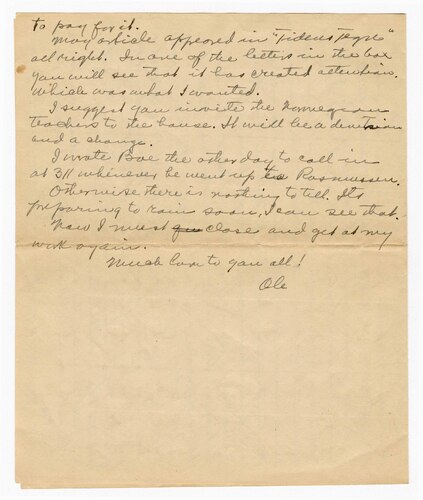 to pay for it.
May article appeared in "Tidens Tegn"
all right. In one of the letters in the box
you will see that it has created attention.
Which was what I wanted.
I suggest you invite the Norwegian
teachers to the house. It will be a diversion
and a change.
I wrote Boe the other day to call in
at 311 whenever he went up to Rasmussen.
Otherwise there is nothing to tell. Its
preparing to rain soon, I can see that.
Now I must close and get at my
work again.
Much love to you all!
Ole